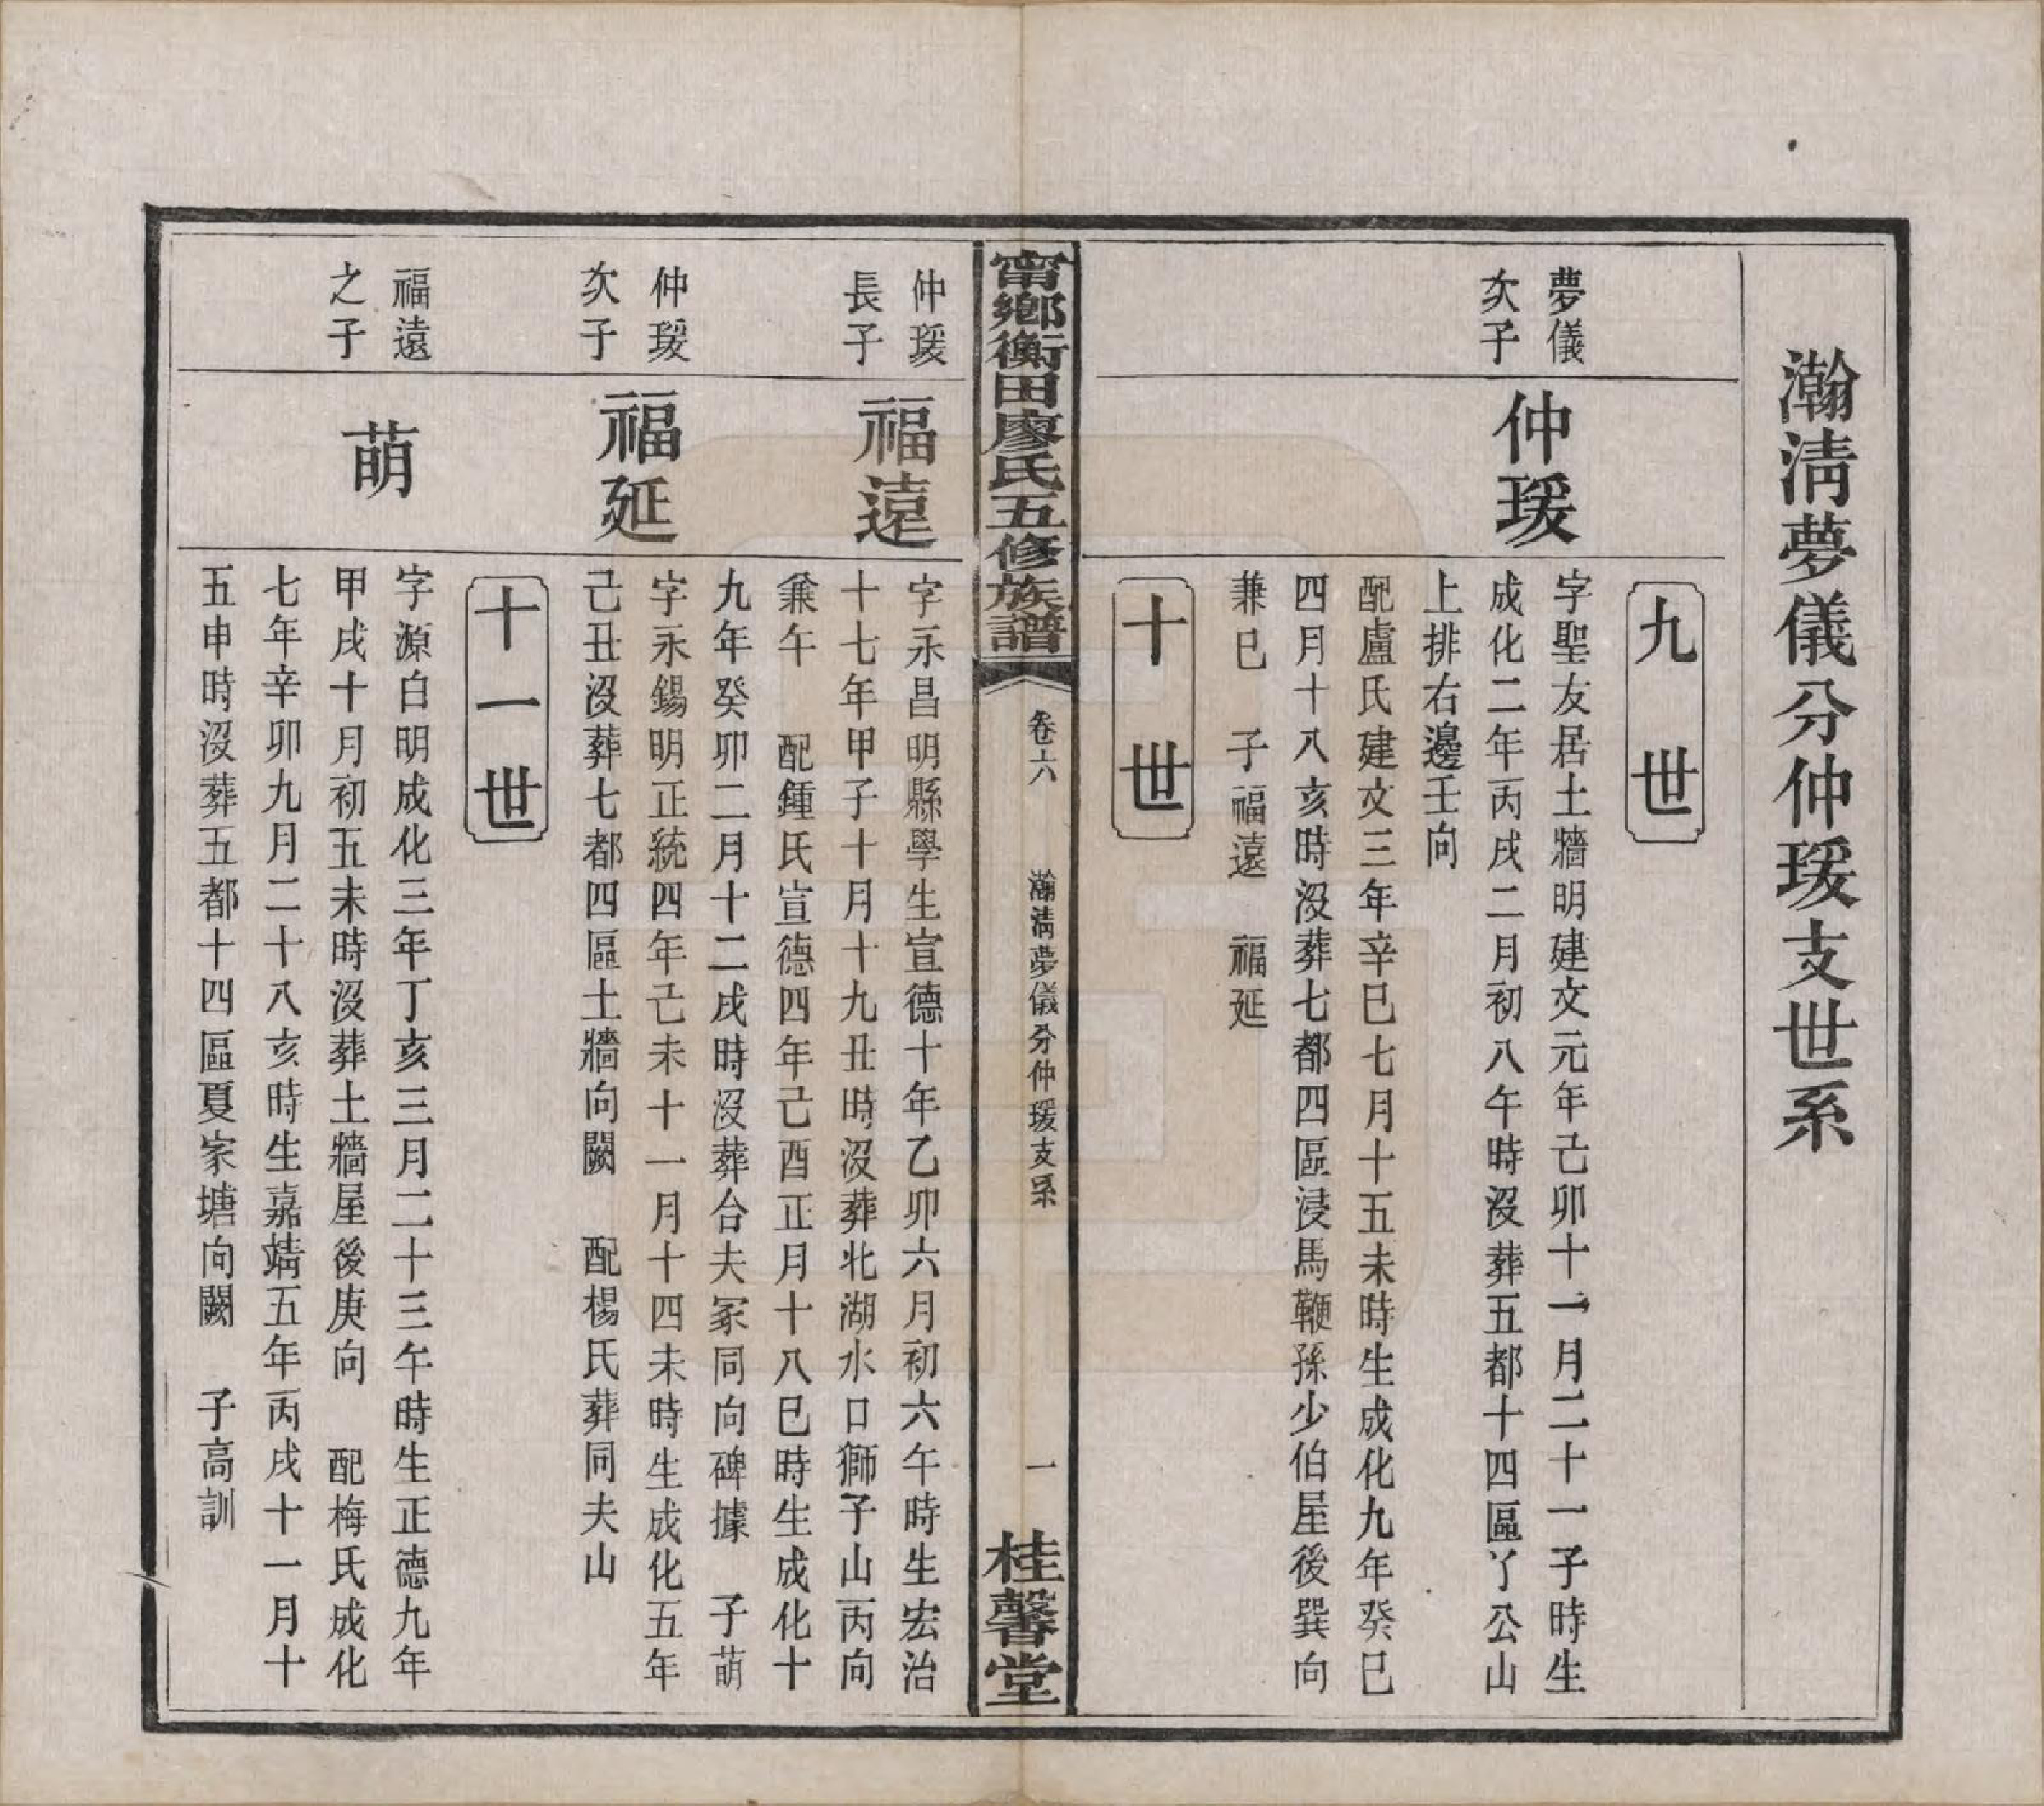 瀚淸夢儀分仲瑗支世系
九世
夢儀
次子
仲瑗
字聖友居土牆明建文元年己卯十一月二十一子時生
成化二年丙戌二月初八午時沒葬五都十四區丫公山
上排右邊壬向
配盧氏建文三年辛巳七月十五未時生成化九年癸巳
四月十八亥時沒葬七都四區浸馬鞭孫少伯屋後巽向
兼巳　子福遠　福延
十世
甯鄉衡田廖氏五修族譜
卷六
瀚淸夢儀分仲瑗支系
一
桂馨堂
仲瑗
長子
福遠
字永昌明縣學生宣德十年乙卯六月初六午時生宏治
十七年甲子十月十九丑時沒葬北湖水口獅子山丙向
兼午　配鍾氏宣德四年己酉正月十八巳時生成化十
九年癸卯二月十二戌時沒葬台夫冢同向碑據　子萌
仲瑗
次子
福延
字永錫明正統四年己未十一月十四未時生成化五年
己丑沒葬七都四區土牆向闕　配楊氏葬同夫山
十一世
福遠
之子
萌
字源白明成化三年丁亥三月二十三午時生正德九年
甲戌十月初五未時沒葬土牆屋後庚向　配梅氏成化
七年辛卯九月二十八亥時生嘉靖五年丙戌十一月十
五申時沒葬五都十四區夏家塘向闕　子高訓